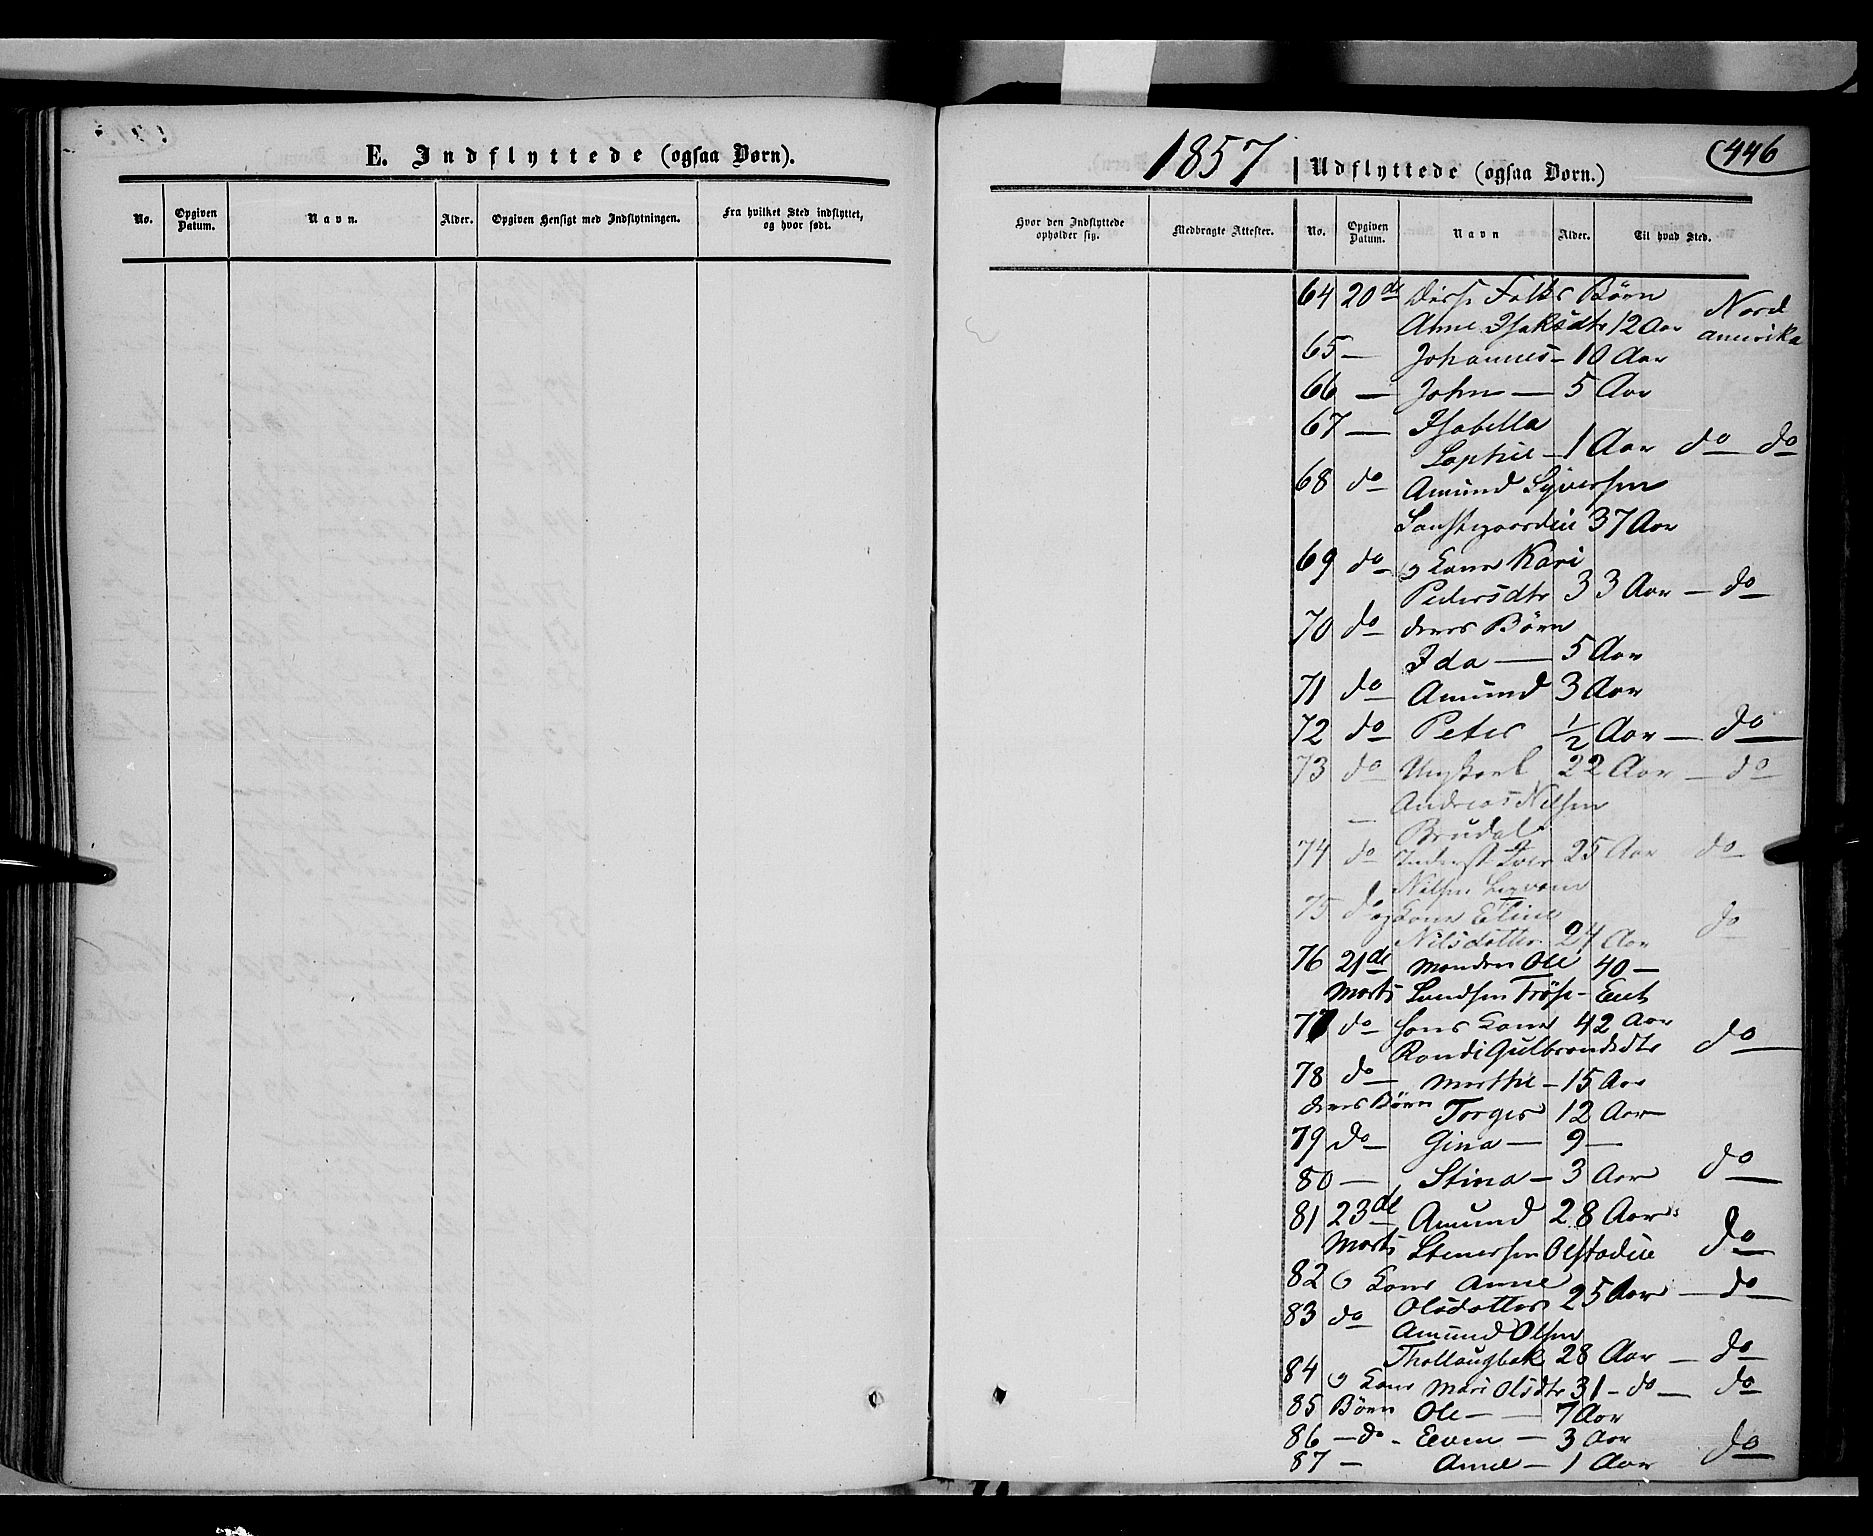 E. Indflyttede (ogsaa Børn).
No. Opgiven Datum. Navn. Alder. Opgiven Hensigt med Indflytningen. Fra hvilket Sted indflyttet, og hvor født.
1857 Udflyttede (ogsaa Børn.) 446
Hvor den Indflyttede opholder sig. Medbragte Attester. No. Opgiven Datum. Navn Alder. Til hvad Sted.
64 20de Disse Folks Børn Nord
Anne Isaksdtr 12 Aar amerika
65 — Johannes — 10 Aar
66 — John — 5 Aar
67 — Isabella
Sophie — 1 Aar do do
68 do Amund Syversen
37 Aar
69 do og Kone Kari
Pedersdtr 33 Aar — do
70 do deres Børn
Ida — 5 Aar
71 do Amund 3 Aar
72 do Peter 1/2 Aar — do
73 do Ungkarl 22 Aar — do
— Andreas Nilsen
Brudal
74 do Inderst Iver 25 Aar do
Nilsen
75 do og Kone Eline do
Nilsdatter 24 Aar
76 21de Manden Ole 40 —
Marts
77 do hans Kone 42 Aar
Randi Gulbrandsdtr do
78 do Marthe — 15 Aar
deres Børn Torger 12 Aar
79 do Gina — 9 —
80 — Stina — 3 Aar do
81 23de Amund 28 Aar
Marts Stenersen do
82 og Kone Anne
Olsdatter 25 Aar — do
83 do Amund Olsen
28 Aar — do
84 og Kone Mari Olsdtr 31 - do — do
85 Børn Ole — 7 Aar
86 — do - Even — 3 Aar
87 — Anne — 1 Aar do